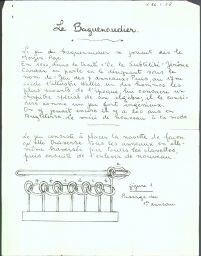 Le Baguenaudier.
Le jeu de baguenaudier se jouait dès le
Moyen Age.
En 1550, dans le traité "De la Subtilité" Jérôme
Cardan en parle en le désignant sous le
nom de "Jeu des 7 anneaux". Puis au 17e
siècle l'illustre Wallis un des hommes les
plus savants de l'époque, lui consacre un
chapitre spécial de son algèbre, et le considère
comme un jeu fort ingénieux.
On y jouait encore il y a 100 ans en
Angleterre.
Le jeu consiste à placer la navette de façon
qu'elle traverse tous les anneaux en elle-
même traversés par toutes les clavettes,
puis ensuite de l'enlever de nouveau.
Figure 1
Passage du
1er anneau